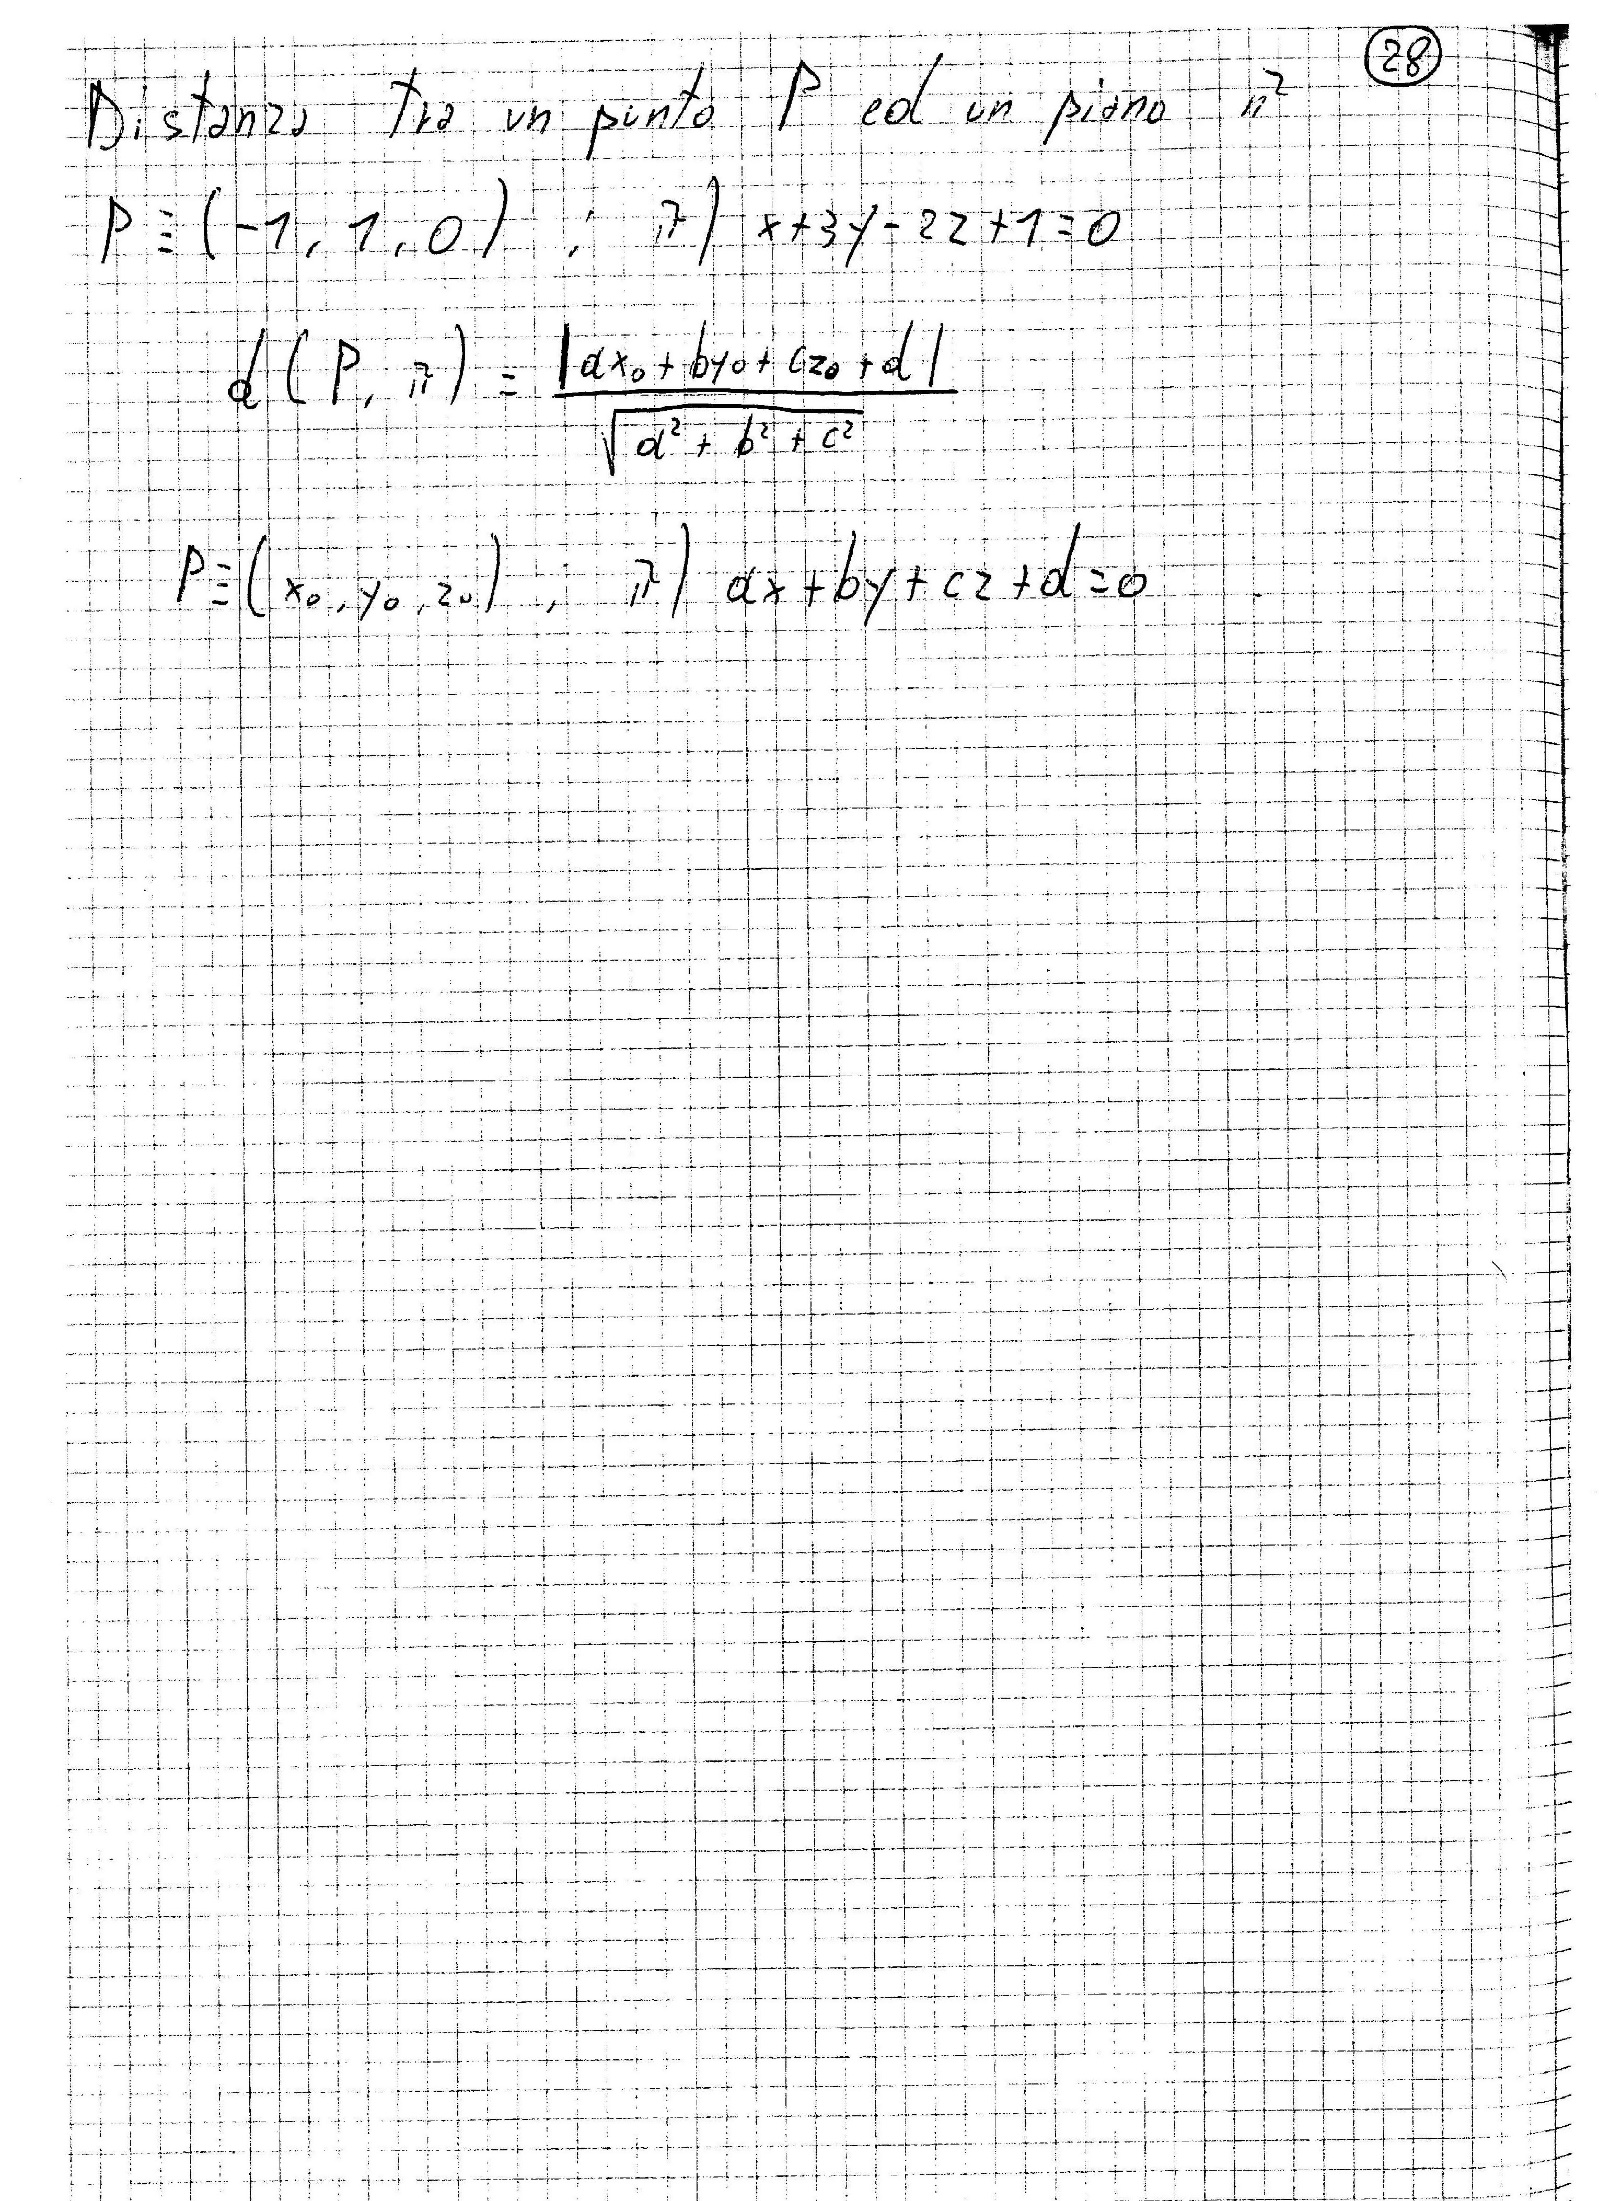 28
Distanza tra un punto P ed un piano π
P ≡ (-1, 1, 0) ; π) x+3y-2z+1=0
d(P, π) = |ax₀ + by₀ + cz₀ + d| / √(a² + b² + c²)
P ≡ (x₀, y₀, z₀) ; π) ax+by+cz+d=0